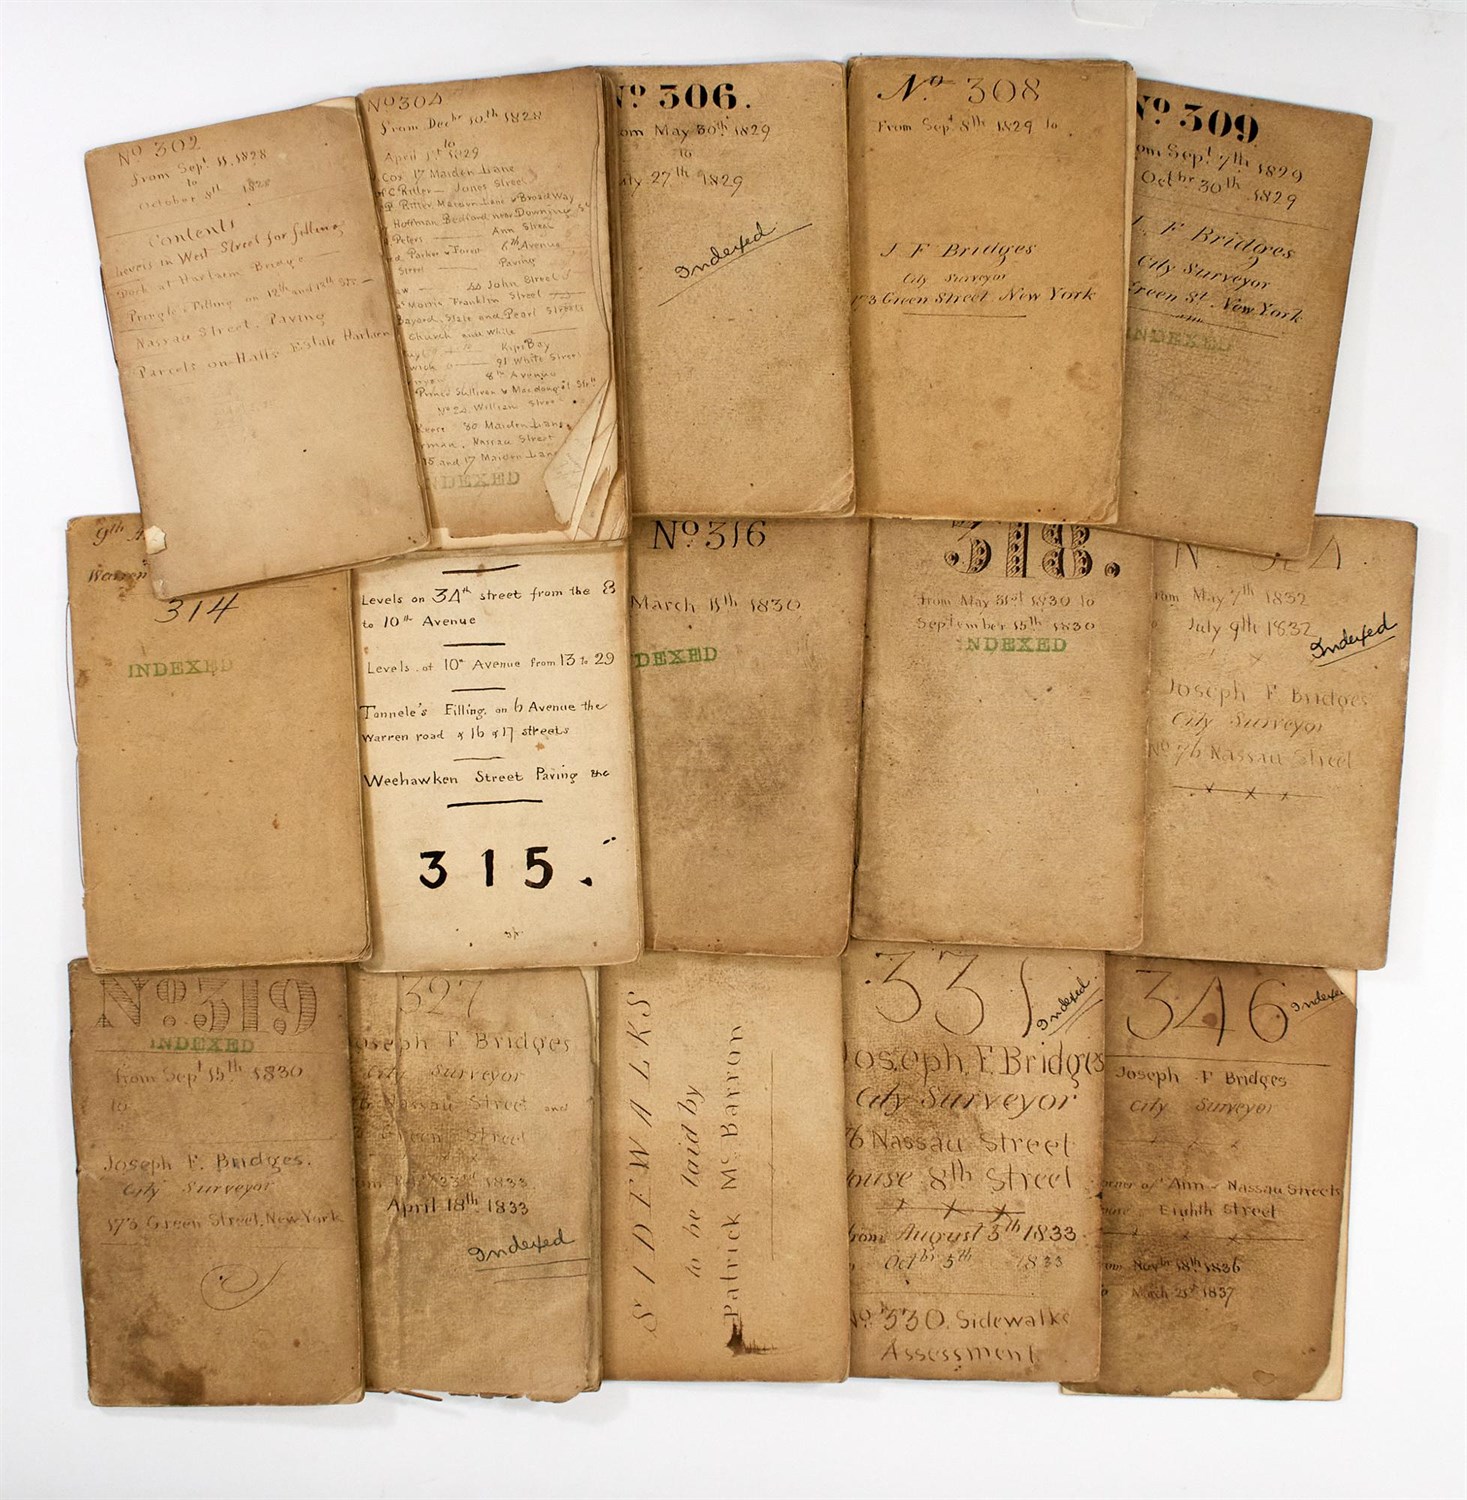 No 302
From Sept. 11, 1828
to
October 8th 1828
Contents
Levels in West Street for filling
Dock at Harlaem Bridge
Pringle's Filling on 12th and 13th Sts.
Nassau Street Paving
Parcels on Halls Estate Harlaem
No 304
From Decbr 10th 1828
to
April 1st 1829
Cox 17 Maiden Lane
C Ritter — Jones Street
P Ritter Maiden Lane & Broad Way
Hoffman Bedford near Downing St
Peters — Ann Street
Parker & 6th Avenue
Street — Paving
44 John Street
Morris Franklin Street
Bayard, State and Pearl Streets
Church and White
Kips Bay
91 White Street
8th Avenue
Prince Sullivan & Macdougal Sts
No 24 William Street
30 Maiden Lane
Nassau Street
15 and 17 Maiden Lane
INDEXED
No 306.
From May 30th 1829
to
July 27th 1829
Indexed
No 308
From Sept 8th 1829 to
J F Bridges
City Surveyor
173 Green Street New York
No 309
From Sept 7th 1829
Octbr 30th 1829
J. F Bridges
City Surveyor
Green St. New York
INDEXED
9th A
Warren
314
INDEXED
Levels on 34th street from the 8
to 10th Avenue
Levels of 10th Avenue from 13 to 29
Tonnele's Filling on 6 Avenue the
Warren road & 16 & 17 streets
Weehawken Street Paving &c
315.
No 316
March 11th 1830
DEXED
318.
From May 31st 1830 to
September 15th 1830
INDEXED
N 324
From May 7th 1832
July 9th 1832
Indexed
Joseph F Bridges
City Surveyor
No 76 Nassau Street
x x x
No. 319
INDEXED
From Sept 15th 1830
to
Joseph F. Bridges.
City Surveyor
173 Green Street, New York
327
Joseph F Bridges
City Surveyor
76 Nassau Street and
Green Street
23rd 1833
April 18th 1833
Indexed
SIDEWALKS
to be laid by
Patrick Mc Barron
331
Indexed
Joseph. F. Bridges
City Surveyor
76 Nassau Street
House 8th Street
x x x
From August 3th 1833
Octbr 5th 1833
No 330. Sidewalks
Assessment
346
Indexed
Joseph F Bridges
City Surveyor
x x x
corner of Ann & Nassau Streets
Eighth Street
x x x
From Novbr 18th 1836
to March 21st 1837